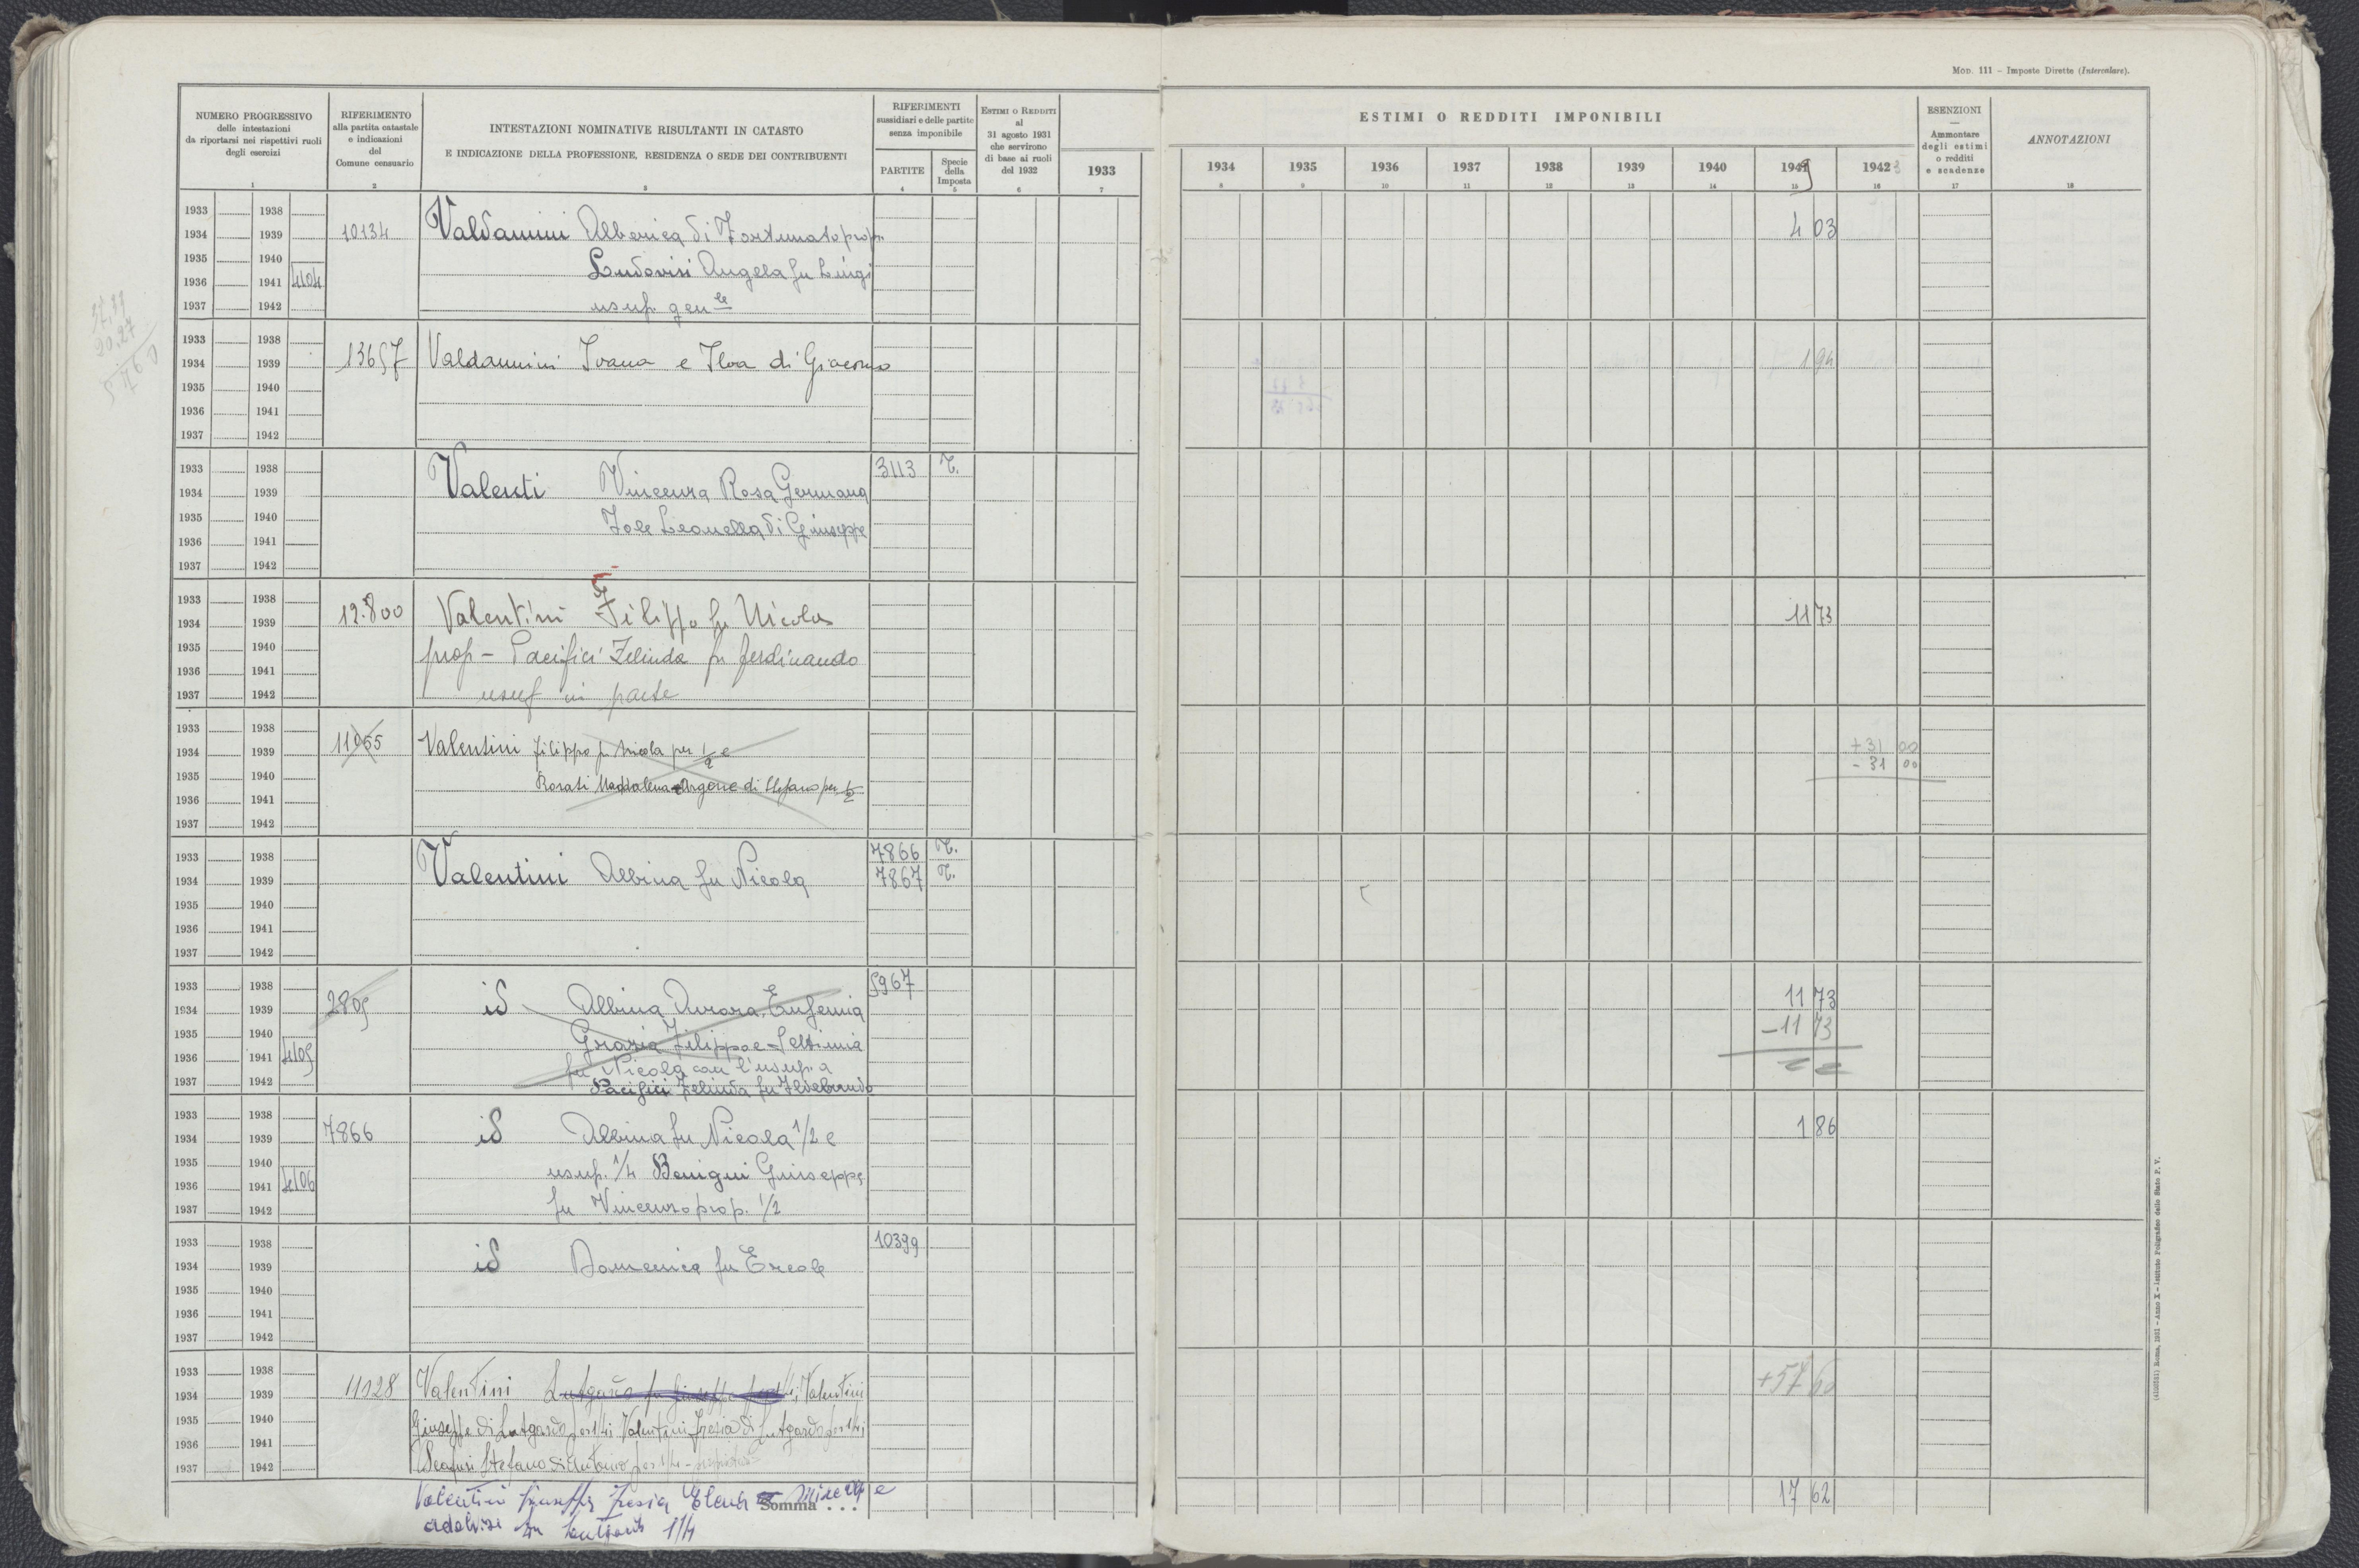 Mod. 111 - Imposte Dirette (Intercalare).
NUMERO PROGRESSIVO
delle intestazioni
da riportarsi nei rispettivi ruoli
degli esercizi
1
RIFERIMENTO
alla partita catastale
e indicazioni
del
Comune censuario
2
INTESTAZIONI NOMINATIVE RISULTANTI IN CATASTO
E INDICAZIONE DELLA PROFESSIONE, RESIDENZA O SEDE DEI CONTRIBUENTI
3
RIFERIMENTI
sussidiari e delle partite
senza imponibile
PARTITE
4
Specie
della
Imposta
5
ESTIMI O REDDITI
al
31 agosto 1931
che servirono
di base ai ruoli
del 1932
6
ESTIMI O REDDITI IMPONIBILI
1933 1934 1935 1936 1937 1938 1939 1940 1942
7 8 9 10 11 12 13 14 15 16
ESENZIONI
—
Ammontare
degli estimi
o redditi
e scadenze
17
ANNOTAZIONI
18
1933 1938
1934 1939 10134 Valdannini Alberica di Fortunato prop. 4 03
1935 1940 Ludovisi Angela fu Luigi
1936 1941 4104
1937 1942 usuf. gen le
1933 1938
1934 1939 13657 Valdannini Ivana e Ilva di Giacomo 1 94
1935 1940
1936 1941
1937 1942
1933 1938 3113 T.
1934 1939 Valenti Vincenza Rosa Germana
1935 1940 Iole Leonella di Giuseppe
1936 1941
1937 1942
1933 1938
1934 1939 12.800 Valentini Filippo fu Nicola 11 73
1935 1940 prop - Pacifici Zelinda fu Ferdinando
1936 1941
1937 1942 usuf in parte
1933 1938
1934 1939 11055 Valentini Filippo fu Nicola per 1/2 e +31 00
1935 1940 - 31 00
1936 1941 Rosati Maddalena per 1/2
1937 1942
1933 1938 7866 T.
1934 1939 Valentini Albina fu Nicola 7867 T.
1935 1940
1936 1941
1937 1942
1933 1938 5967
1934 1939 2805 id Albina Aurora, Eufemia 11 73
1935 1940 Grazia Filippo e Settimia -11 73
1936 1941 4105 fu Nicola con l'usuf. a
1937 1942 Pacifici Zelinda fu Ildebrando
1933 1938
1934 1939 7866 id Albina fu Nicola 1/2 e 1 86
1935 1940 usuf. 1/4 Benigni Giuseppe
1936 1941 4106
1937 1942 fu Vincenzo prop. 1/2
1933 1938 10399
1934 1939 id Domenica fu Ercole
1935 1940
1936 1941
1937 1942
1933 1938
1934 1939 11028 Valentini Valentini +57 60
1935 1940 Giuseppe di Lutgardo per 1/4 Valentini di Lutgardo per 1/4
1936 1941
1937 1942 Stefano di Antonio per 1/4
Valentini Giuseppe Elena e
Somma . . . 17 62
1/4
(4100551) Roma, 1931 - Anno X - Istituto Poligrafico dello Stato P. V.